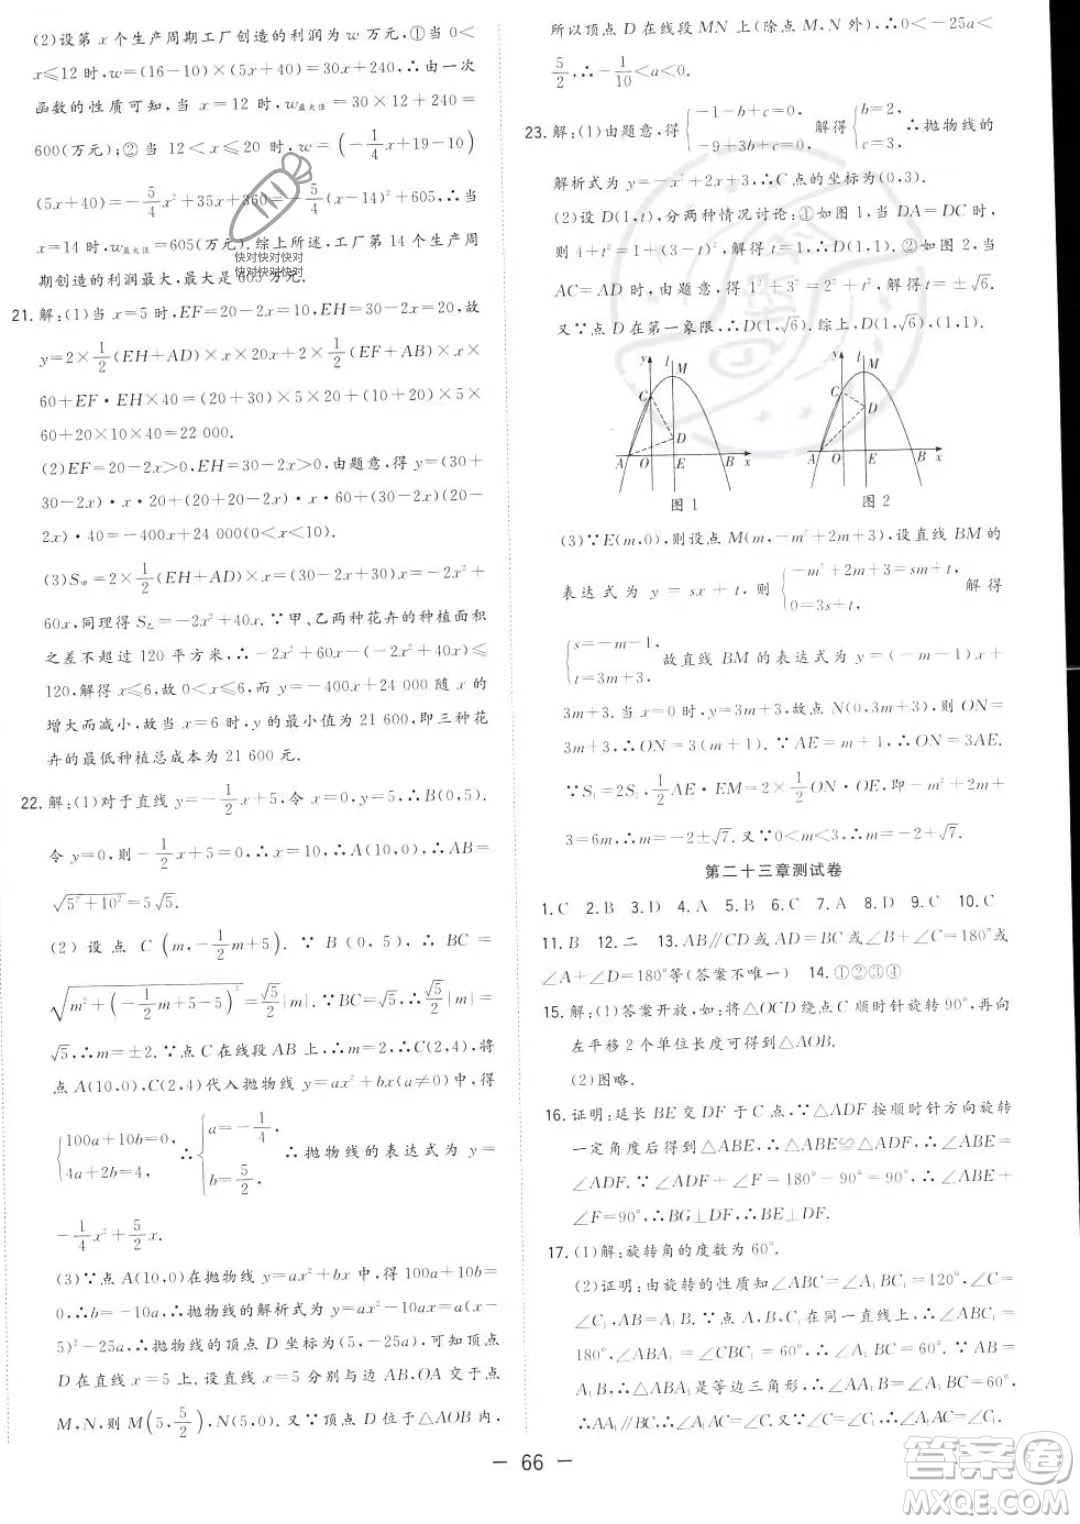 (2)设第 x 个生产周期工厂创造的利润为 w 万元,①当 0<
x≤12 时,w=(16-10)×(5x+40)=30x+240,∴由一次
函数的性质可知,当 x=12 时,w最大值=30×12+240=
600(万元);②当 12<x≤20 时,w=(-1/4x+19-10)
(5x+40)=-5/4x²+35x+360=-5/4(x-14)²+605,∴当
x=14 时,w最大值=605(万元).综上所述,工厂第 14 个生产周
期创造的利润最大,最大是 605 万元.
快对快对快对
快对快对快对
21. 解:(1)当 x=5 时,EF=20-2x=10,EH=30-2x=20,故
y=2×1/2(EH+AD)×20x+2×1/2(EF+AB)×x×
60+EF·EH×40=(20+30)×5×20+(10+20)×5×
60+20×10×40=22 000.
(2)EF=20-2x>0,EH=30-2x>0,由题意,得 y=(30+
30-2x)·x·20+(20+20-2x)·x·60+(30-2x)(20-
2x)·40=-400x+24 000(0<x<10).
(3)S甲=2×1/2(EH+AD)×x=(30-2x+30)x=-2x²+
60x,同理得 S乙=-2x²+40x.∵甲、乙两种花卉的种植面积
之差不超过 120 平方米,∴-2x²+60x-(-2x²+40x)≤
120,解得 x≤6,故 0<x≤6,而 y=-400x+24 000 随 x 的
增大而减小,故当 x=6 时,y 的最小值为 21 600,即三种花
卉的最低种植总成本为 21 600 元.
22. 解:(1)对于直线 y=-1/2x+5,令 x=0,y=5,∴B(0,5).
令 y=0,则-1/2x+5=0,∴x=10,∴A(10,0),∴AB=
√(5²+10²)=5√5.
(2)设点 C(m,-1/2m+5).∵B(0,5),∴BC=
√(m²+(-1/2m+5-5)²)=√5/2|m|.∵BC=√5,∴√5/2|m|=
√5,∴m=±2.∵点 C 在线段 AB 上,∴m=2,∴C(2,4),将
点 A(10,0),C(2,4)代入抛物线 y=ax²+bx(a≠0)中,得
{100a+10b=0, 4a+2b=4, ∴{a=-1/4, b=5/2, ∴抛物线的表达式为 y=
-1/4x²+5/2x.
(3)∵点 A(10,0)在抛物线 y=ax²+bx 中,得 100a+10b=
0,∴b=-10a,∴抛物线的解析式为 y=ax²-10ax=a(x-
5)²-25a,∴抛物线的顶点 D 坐标为(5,-25a),可知顶点
D 在直线 x=5 上.设直线 x=5 与边 AB,OA 交于点
M,N,则 M(5,5/2),N(5,0).又∵顶点 D 位于△AOB 内,
所以顶点 D 在线段 MN 上(除点 M,N 外),∴0<-25a<
5/2,∴-1/10<a<0.
23. 解:(1)由题意,得{-1-b+c=0, -9+3b+c=0, 解得{b=2, c=3, ∴抛物线的
解析式为 y=-x²+2x+3,∴C 点的坐标为(0,3).
(2)设 D(1,t),分两种情况讨论:①如图 1,当 DA=DC 时,
则 4+t²=1+(3-t)²,解得 t=1,∴D(1,1).②如图 2,当
AC=AD 时,由题意,得 1²+3²=2²+t²,解得 t=±√6.
又∵点 D 在第一象限,∴D(1,√6).综上,D(1,√6),(1,1).
y l M C D A O E B x
图 1
y l M C D A O E B x
图 2
(3)∵E(m,0),则设点 M(m,-m²+2m+3),设直线 BM 的
表达式为 y=sx+t,则{-m²+2m+3=sm+t, 0=3s+t, 解得
{s=-m-1, t=3m+3, 故直线 BM 的表达式为 y=(-m-1)x+
3m+3.当 x=0 时,y=3m+3,故点 N(0,3m+3),则 ON=
3m+3,∴ON=3(m+1).∵AE=m+1,∴ON=3AE.
∵S₁=2S₂,1/2AE·EM=2×1/2ON·m,∴-m²+2m+
3=6m,∴m=-2±√7.又∵0<m<3,∴m=-2+√7.
第二十三章测试卷
1. C 2. B 3. D 4. A 5. B 6. C 7. A 8. D 9. C 10. C
11. B 12. 二 13. AB∥CD 或 AD=BC 或∠B+∠C=180°或
∠A+∠D=180°等(答案不唯一) 14. ①②③④
15. 解:(1)答案开放,如:将△OCD 绕点 C 顺时针旋转 90°,再向
左平移 2 个单位长度可得到△AOB.
(2)图略.
16. 证明:延长 BE 交 DF 于 G 点,∵△ADF 按顺时针方向旋转
一定角度后得到△ABE,∴△ABE≌△ADF,∴∠ABE=
∠ADF.∵∠ADF+∠F=180°-90°=90°,∴∠ABE+
∠F=90°,∴BG⊥DF,∴BE⊥DF.
17. (1)解:旋转角的度数为 60°.
(2)证明:由旋转的性质知∠ABC=∠A₁BC₁=120°,∠C=
∠C₁,AB=A₁B.∵点 A,B,C₁ 在同一直线上,∴∠ABC₁=
180°,∴∠ABA₁=∠CBC₁=60°,∴∠A₁BC=60°.又∵AB=
A₁B,∴△ABA₁ 是等边三角形,∴∠AA₁B=∠A₁BC=60°,
∴AA₁∥BC,∴∠A₁AC=∠C,∴∠A₁AC=∠C₁.
— 66 —
答案圈
MXQE.COM